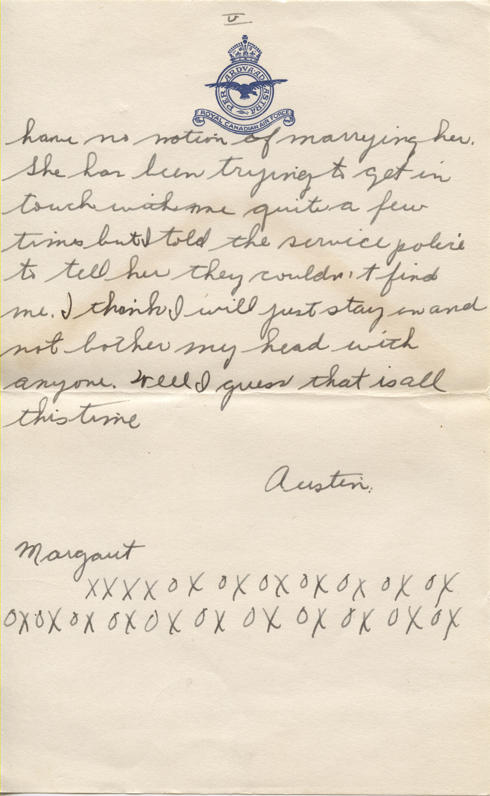 V
PER ARDUA AD ASTRA
ROYAL CANADIAN AIR FORCE
have no notion of marrying her.
She has been trying to get in
touch with me quite a few
times but I told the service police
to tell her they couldn't find
me. I think I will just stay in and
not bother my head with
anyone. Well I guess that is all
this time
Austin.
Margaut
XXXX OX OX OX OX OX OX OX
OXOX OX OX OX OX OX OX OX OX OX